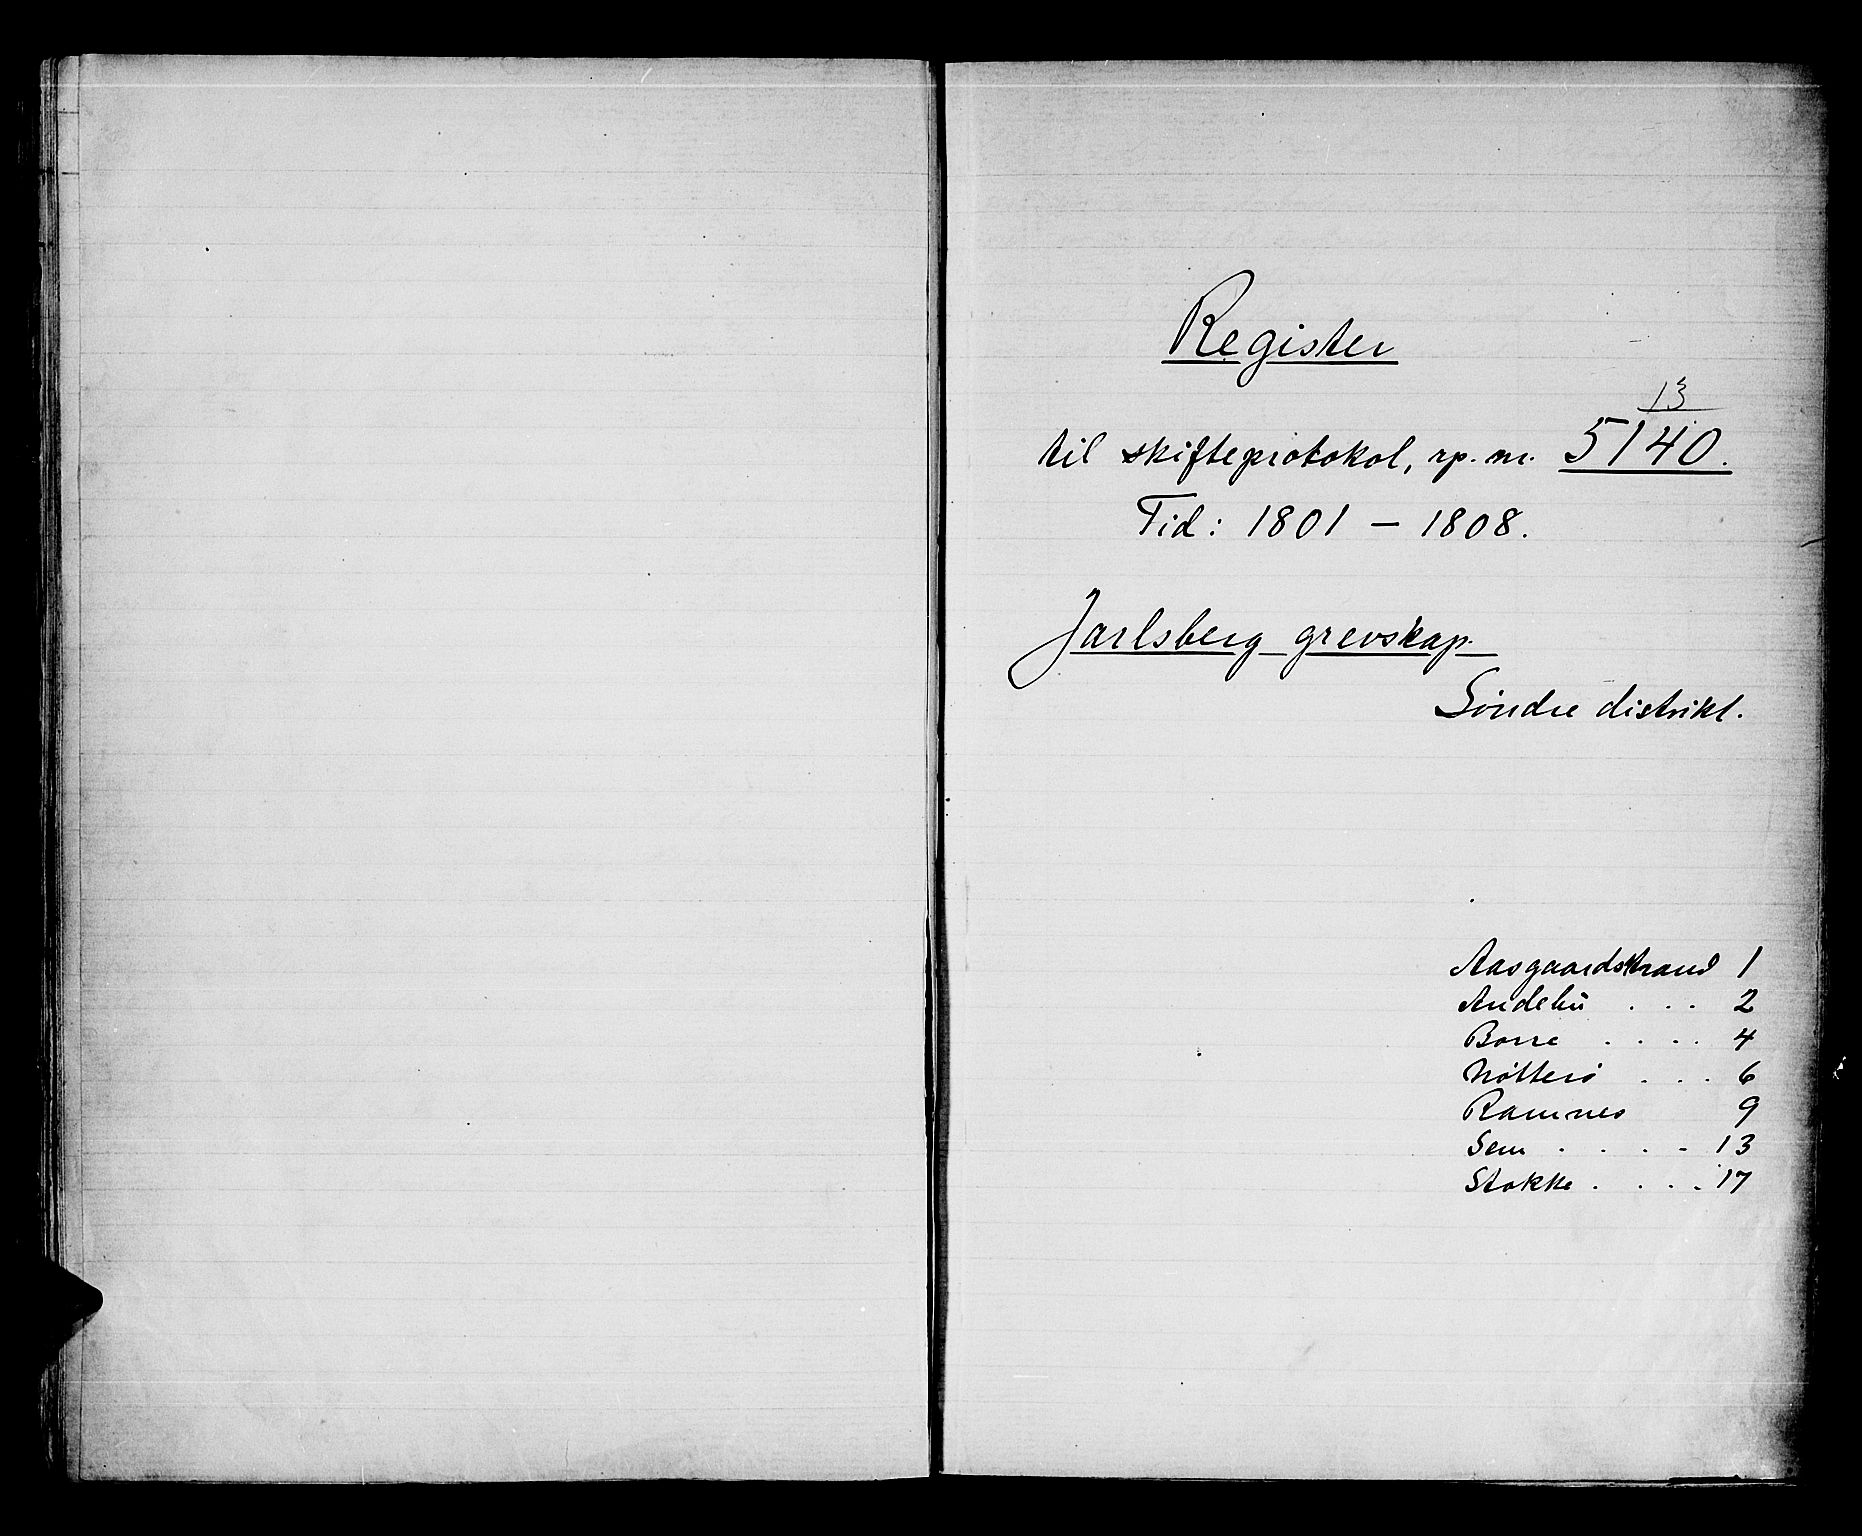 Register
13
til skifteprotokol, rp. nr. 5140.
Tid: 1801 – 1808.
Jarlsberg grevskap
Söndre distrikt.
Aasgaardstrand 1
Andebu . . . 2
Borre . . . . 4
Nötterö . . . 6
Ramnes 9
Sem . . . . 13
Stokke . . . . 17